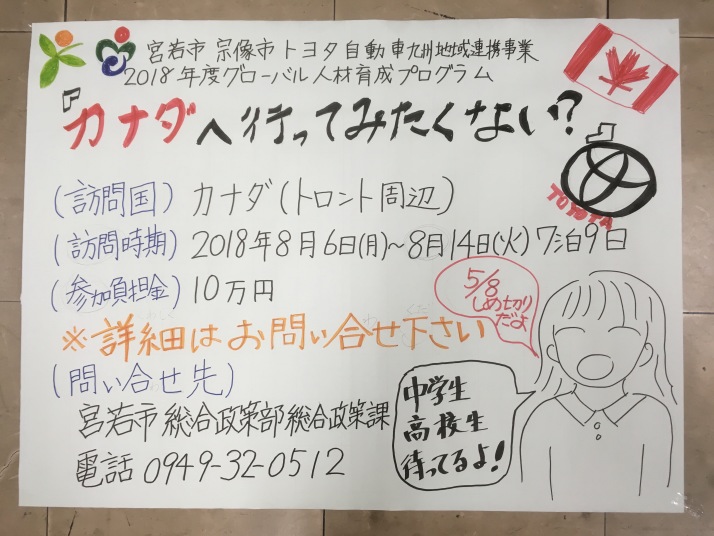 宮若市 宗像市 トヨタ自動車九州地域連携事業
2018年度グローバル人材育成プログラム
『カナダへ行ってみたくない?』
TOYOTA
(訪問国) カナダ(トロント周辺)
(訪問時期) 2018年8月6日(月)~8月14日(火) 7泊9日
(参加負担金) 10万円
5/8
しめ切り
だよ
※詳細はお問い合せ下さい
(問い合せ先)
宮若市総合政策部総合政策課
電話 0949-32-0512
中学生
高校生
待ってるよ!